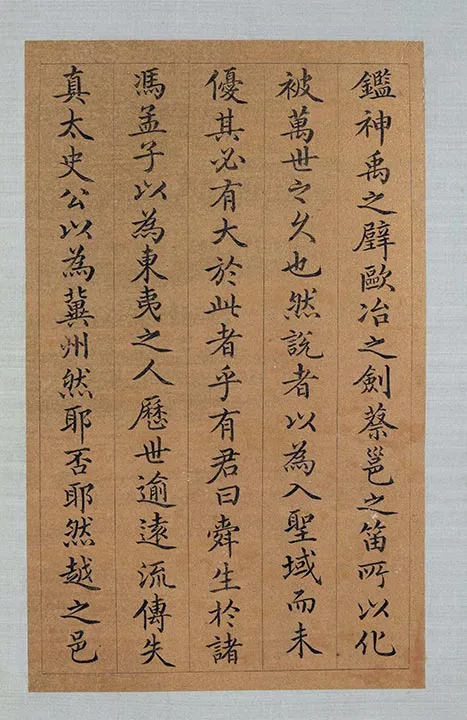 鑑神禹之璧歐冶之劍蔡邕之笛所以化
被萬世之久也然說者以為入聖域而未
優其必有大於此者乎有君曰舜生於諸
馮孟子以為東夷之人歷世逾遠流傳失
真太史公以為冀州然耶否耶然越之邑